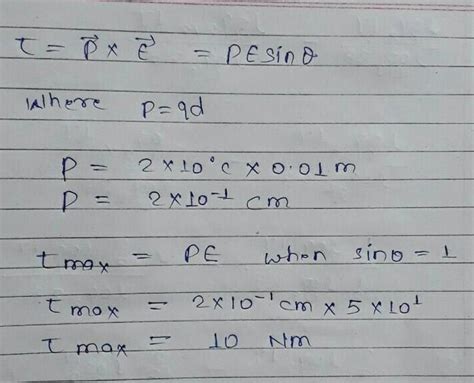 τ = P⃗ × E⃗ = PE sinθ
Where P = qd
P = 2 × 10°C × 0.01 m
P = 2 × 10⁻¹ cm
τ max = PE when sinθ = 1
τ max = 2 × 10⁻¹ cm × 5 × 10¹
τ max = 10 Nm